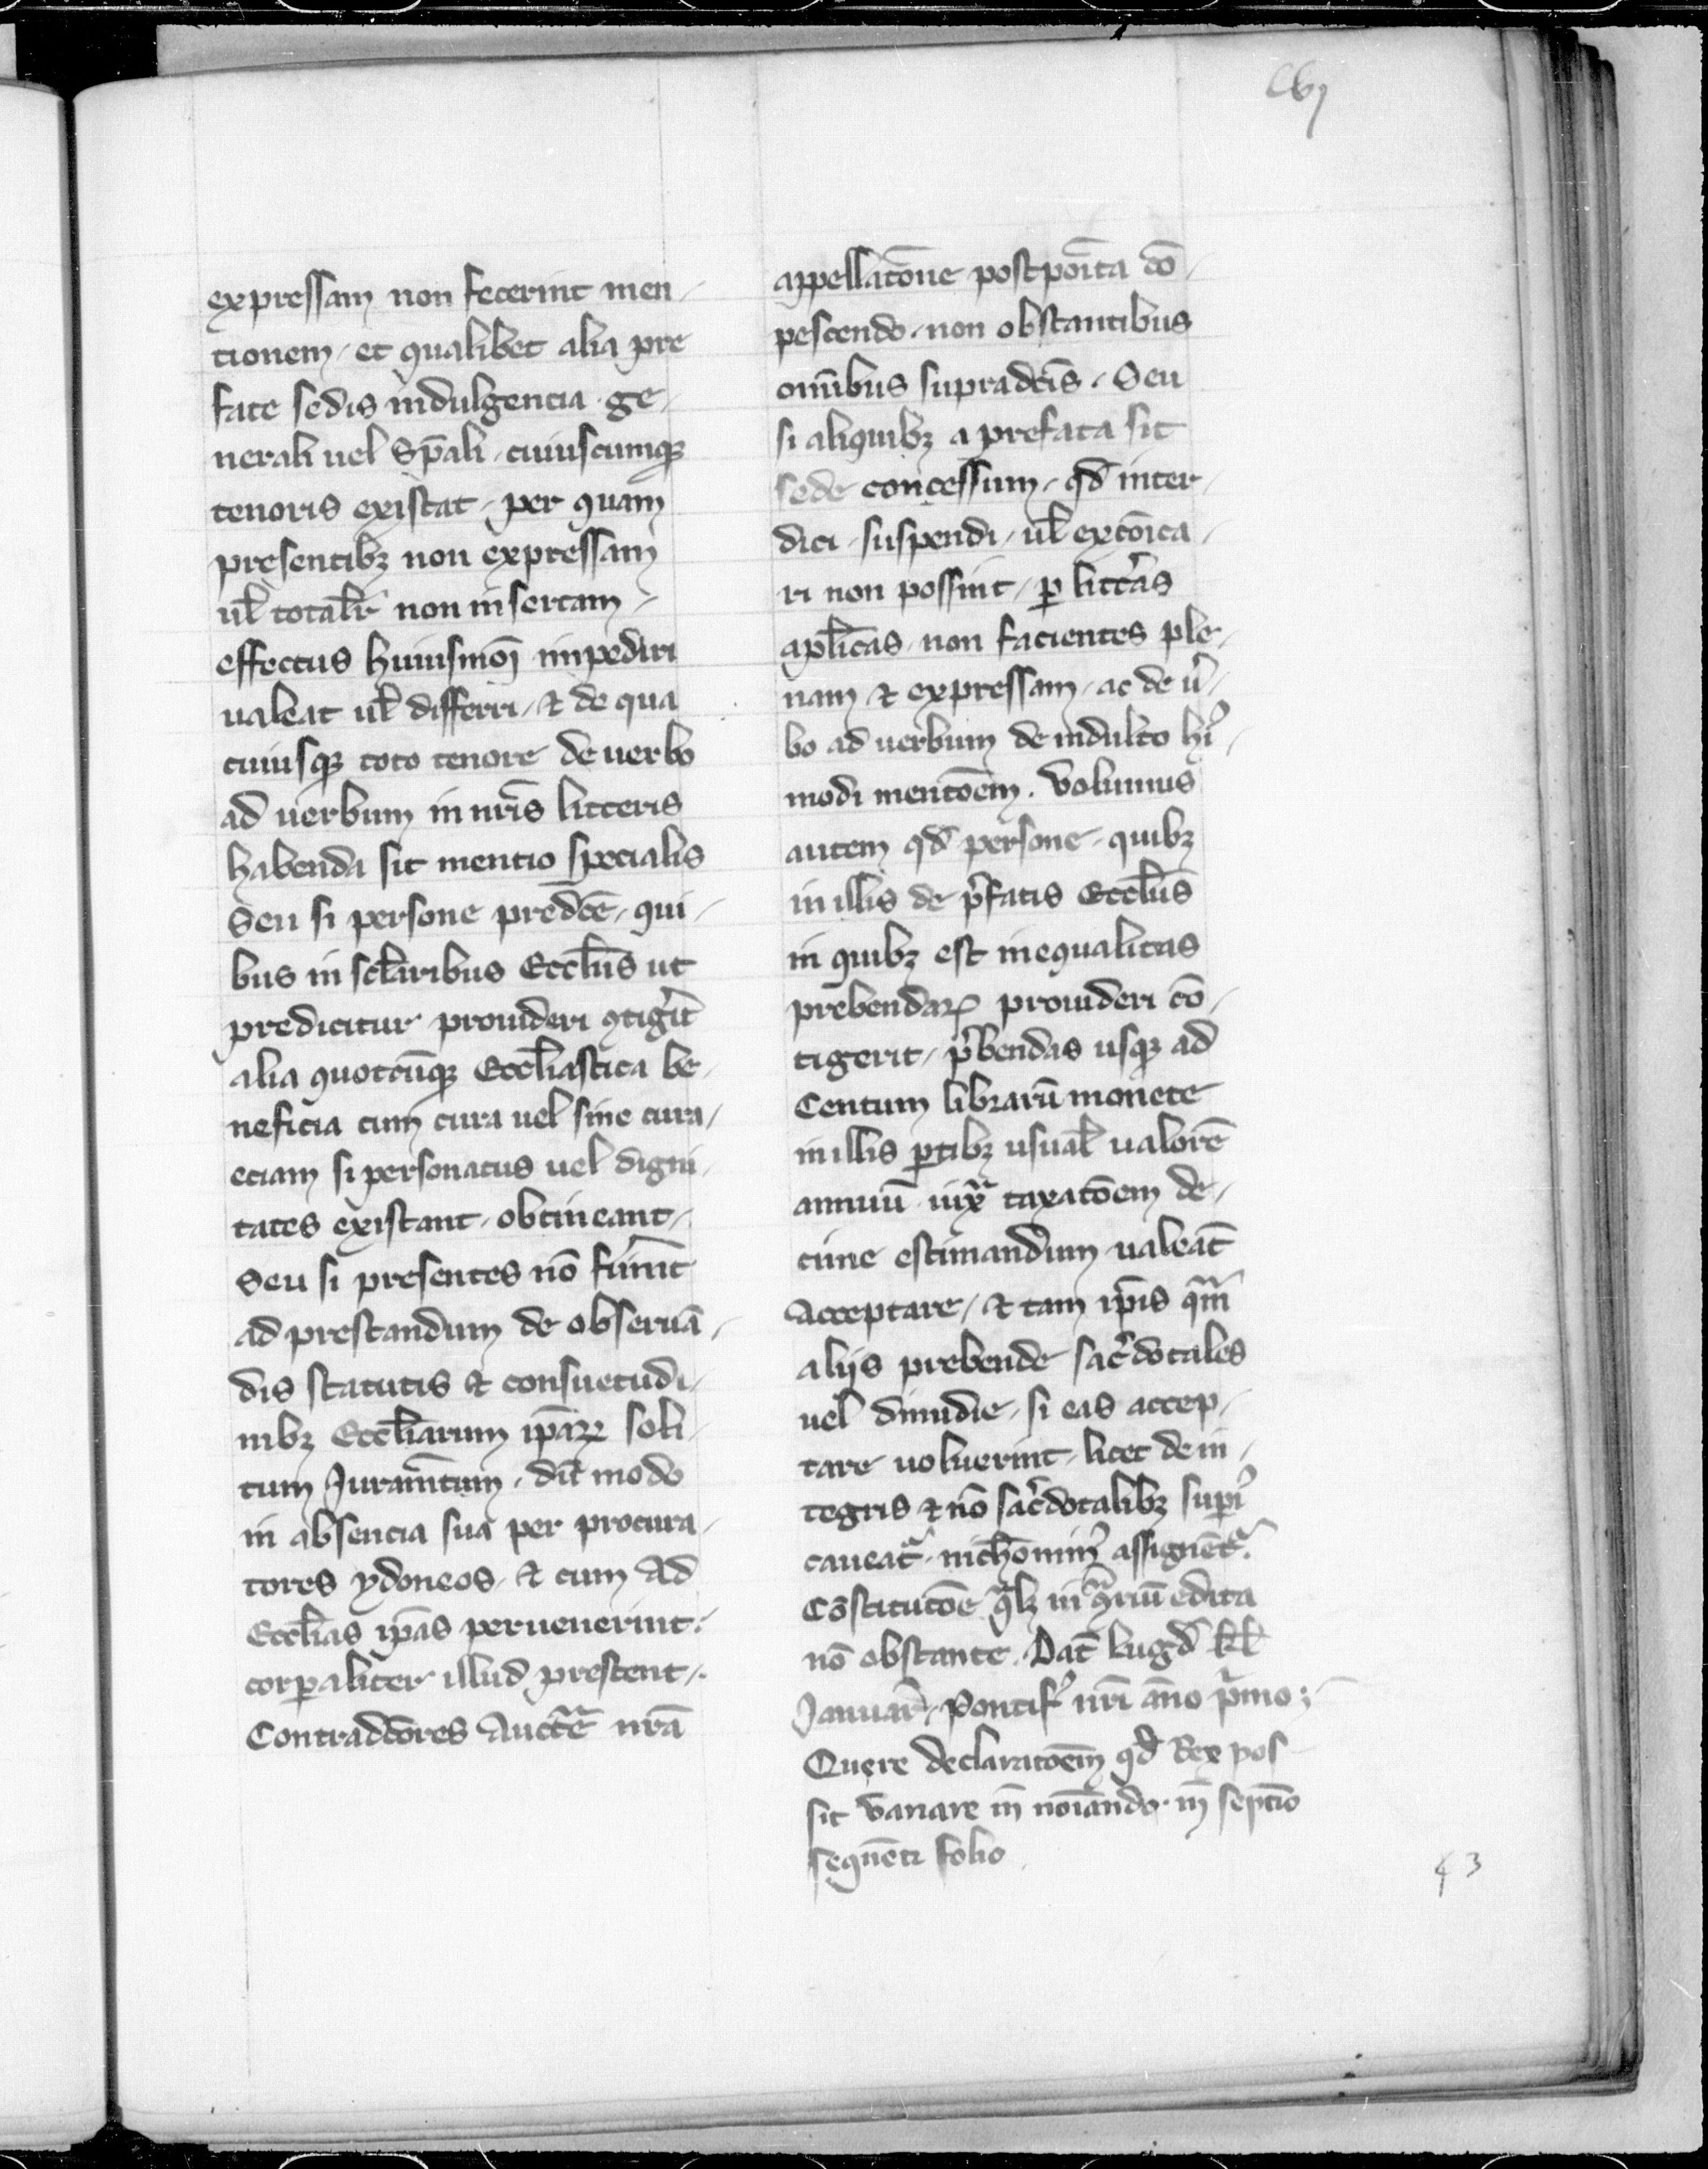 Cvj
expressam non fecerint men-
tionem, et qualibet alia pre
fate sedis indulgencia ge-
nerali uel Sp̄ali, cuiuscumqꝫ
tenoris existat, per quam
presentibꝫ non expressam
ul̄ total̄r non insertam,
effectus huiusmōi impediri
ualeat ul̄ differri, ⁊ de qua
cuiusqꝫ toto tenore de uerbo
ad uerbum in nr̄is litteris
habenda sit mentio specialis
Seu si persone predc̄e, qui-
bus in sc̄laribus Eccl̄iis ut
predicitur prouideri ꝯtiḡit
alia quotcūqꝫ Eccl̄iastica be-
neficia cum cura uel sine cura,
eciam si personatus uel digni-
tates existant, obtineant,
Seu si presentes nō fūint
ad prestandum de obseruā-
dis statutis ⁊ consuetudi-
nibꝫ Eccl̄iarum ip̄aꝝ soli-
tum Iuramt̄um, dū modo
in absencia sua per procura-
tores ydoneos, ⁊ cum Ad
Eccl̄ias ip̄as peruenerint.
corꝑaliter illud prestent.
Contradc̄ores Auctē nr̄a
appellatōne postpoīta cō-
pescendo, non obstantibus
omībus supradc̄is. Seu
si aliquibꝫ a prefata sit
sede concessum, qd̄ inter-
dici, suspendi, ul̄ excōica-
ri non possint, ꝑ litt̄as
apl̄icas, non facientes ple-
nam ⁊ expressam, ac de ū-
bo ad uerbum de indulto hī-
modi mentōem. Volumus
autem qd̄ persone, quibꝫ
in illis de p̄fatis Eccl̄iis
in quibꝫ est inequalitas
prebendaꝝ prouideri cō-
tigerit, p̄bendas usqꝫ ad
Centum librarū monete
in illis ꝑtibꝫ usual̄ ualorē
annuū iuxᵃ taxatōem de-
cime estimandum ualeāt
Acceptare, ⁊ tam ip̄is qᵃm
alijs prebende sac̄dotales
uel dimidie, si eas accep-
tare uoluerint, licet de in-
tegris ⁊ nō sac̄dotalibꝫ supī
caueat̄, nicħomin̄ assignēt̄.
Cōstitutōe qᵃlꝫ in ꝯriū edita
nō obstante. Dat̄ Lugd̄ kl̄
Januar̄, Pontif̄ nr̄i āno p̄mo;
Quere declaratōem qd̄ Rex pos-
sit variare in noīando, in septīo
sequēti folio
43